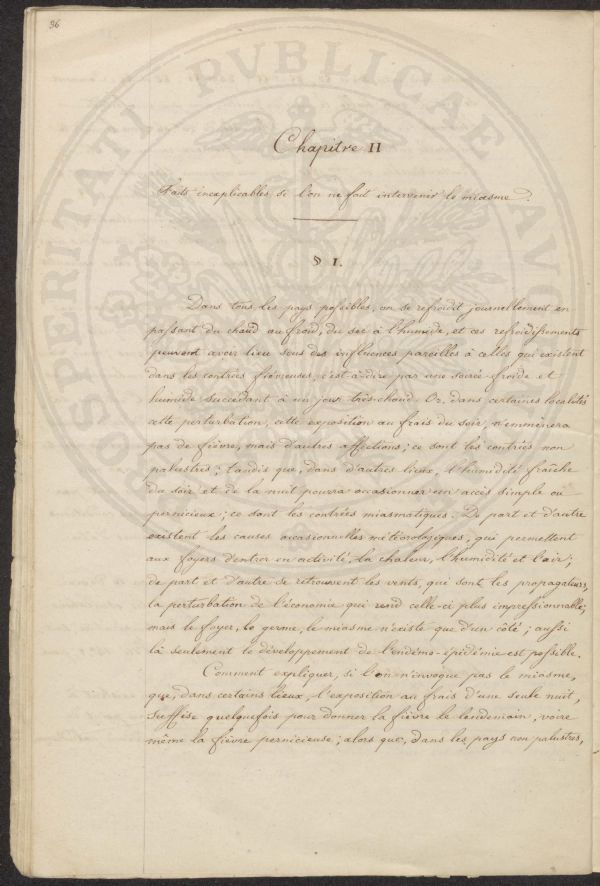 96
Chapitre II
Faits inexplicables si l'on ne fait intervenir le miasme.
§ I.
Dans tous les pays possibles, on se refroidit journellement en
passant du chaud au froid, du sec à l'humide, et ces refroidissements
peuvent avoir lieu sous des influences pareilles à celles qui existent
dans les contrées fiévreuses, c'est-à-dire par une soirée froide et
humide succédant à un jour très-chaud. Or, dans certaines localités
cette perturbation, cette exposition au frais du soir, n'emmènera
pas de fièvre, mais d'autres affections; ce sont les contrées non
palustres; tandis que, dans d'autres lieux, l'humidité fraîche
du soir et de la nuit pourra occasionner un accès simple ou
pernicieux; ce sont les contrées miasmatiques. De part et d'autre
existent les causes occasionnelles météorologiques, qui permettent
aux foyers d'entrer en activité, la chaleur, l'humidité et l'air;
de part et d'autre se retrouvent les vents, qui sont les propagateurs,
la perturbation de l'économie qui rend celle-ci plus impressionnable;
mais le foyer, le germe, le miasme n'existe que d'un côté; aussi
là seulement le développement de l'endémo-épidémie est possible.
Comment expliquer, si l'on n'invoque pas le miasme,
que, dans certains lieux, l'exposition au frais d'une seule nuit,
suffise quelquefois pour donner la fièvre le lendemain, voire
même la fièvre pernicieuse; alors que, dans les pays non palustres,
PROSPERITATI PUBLICAE AUC